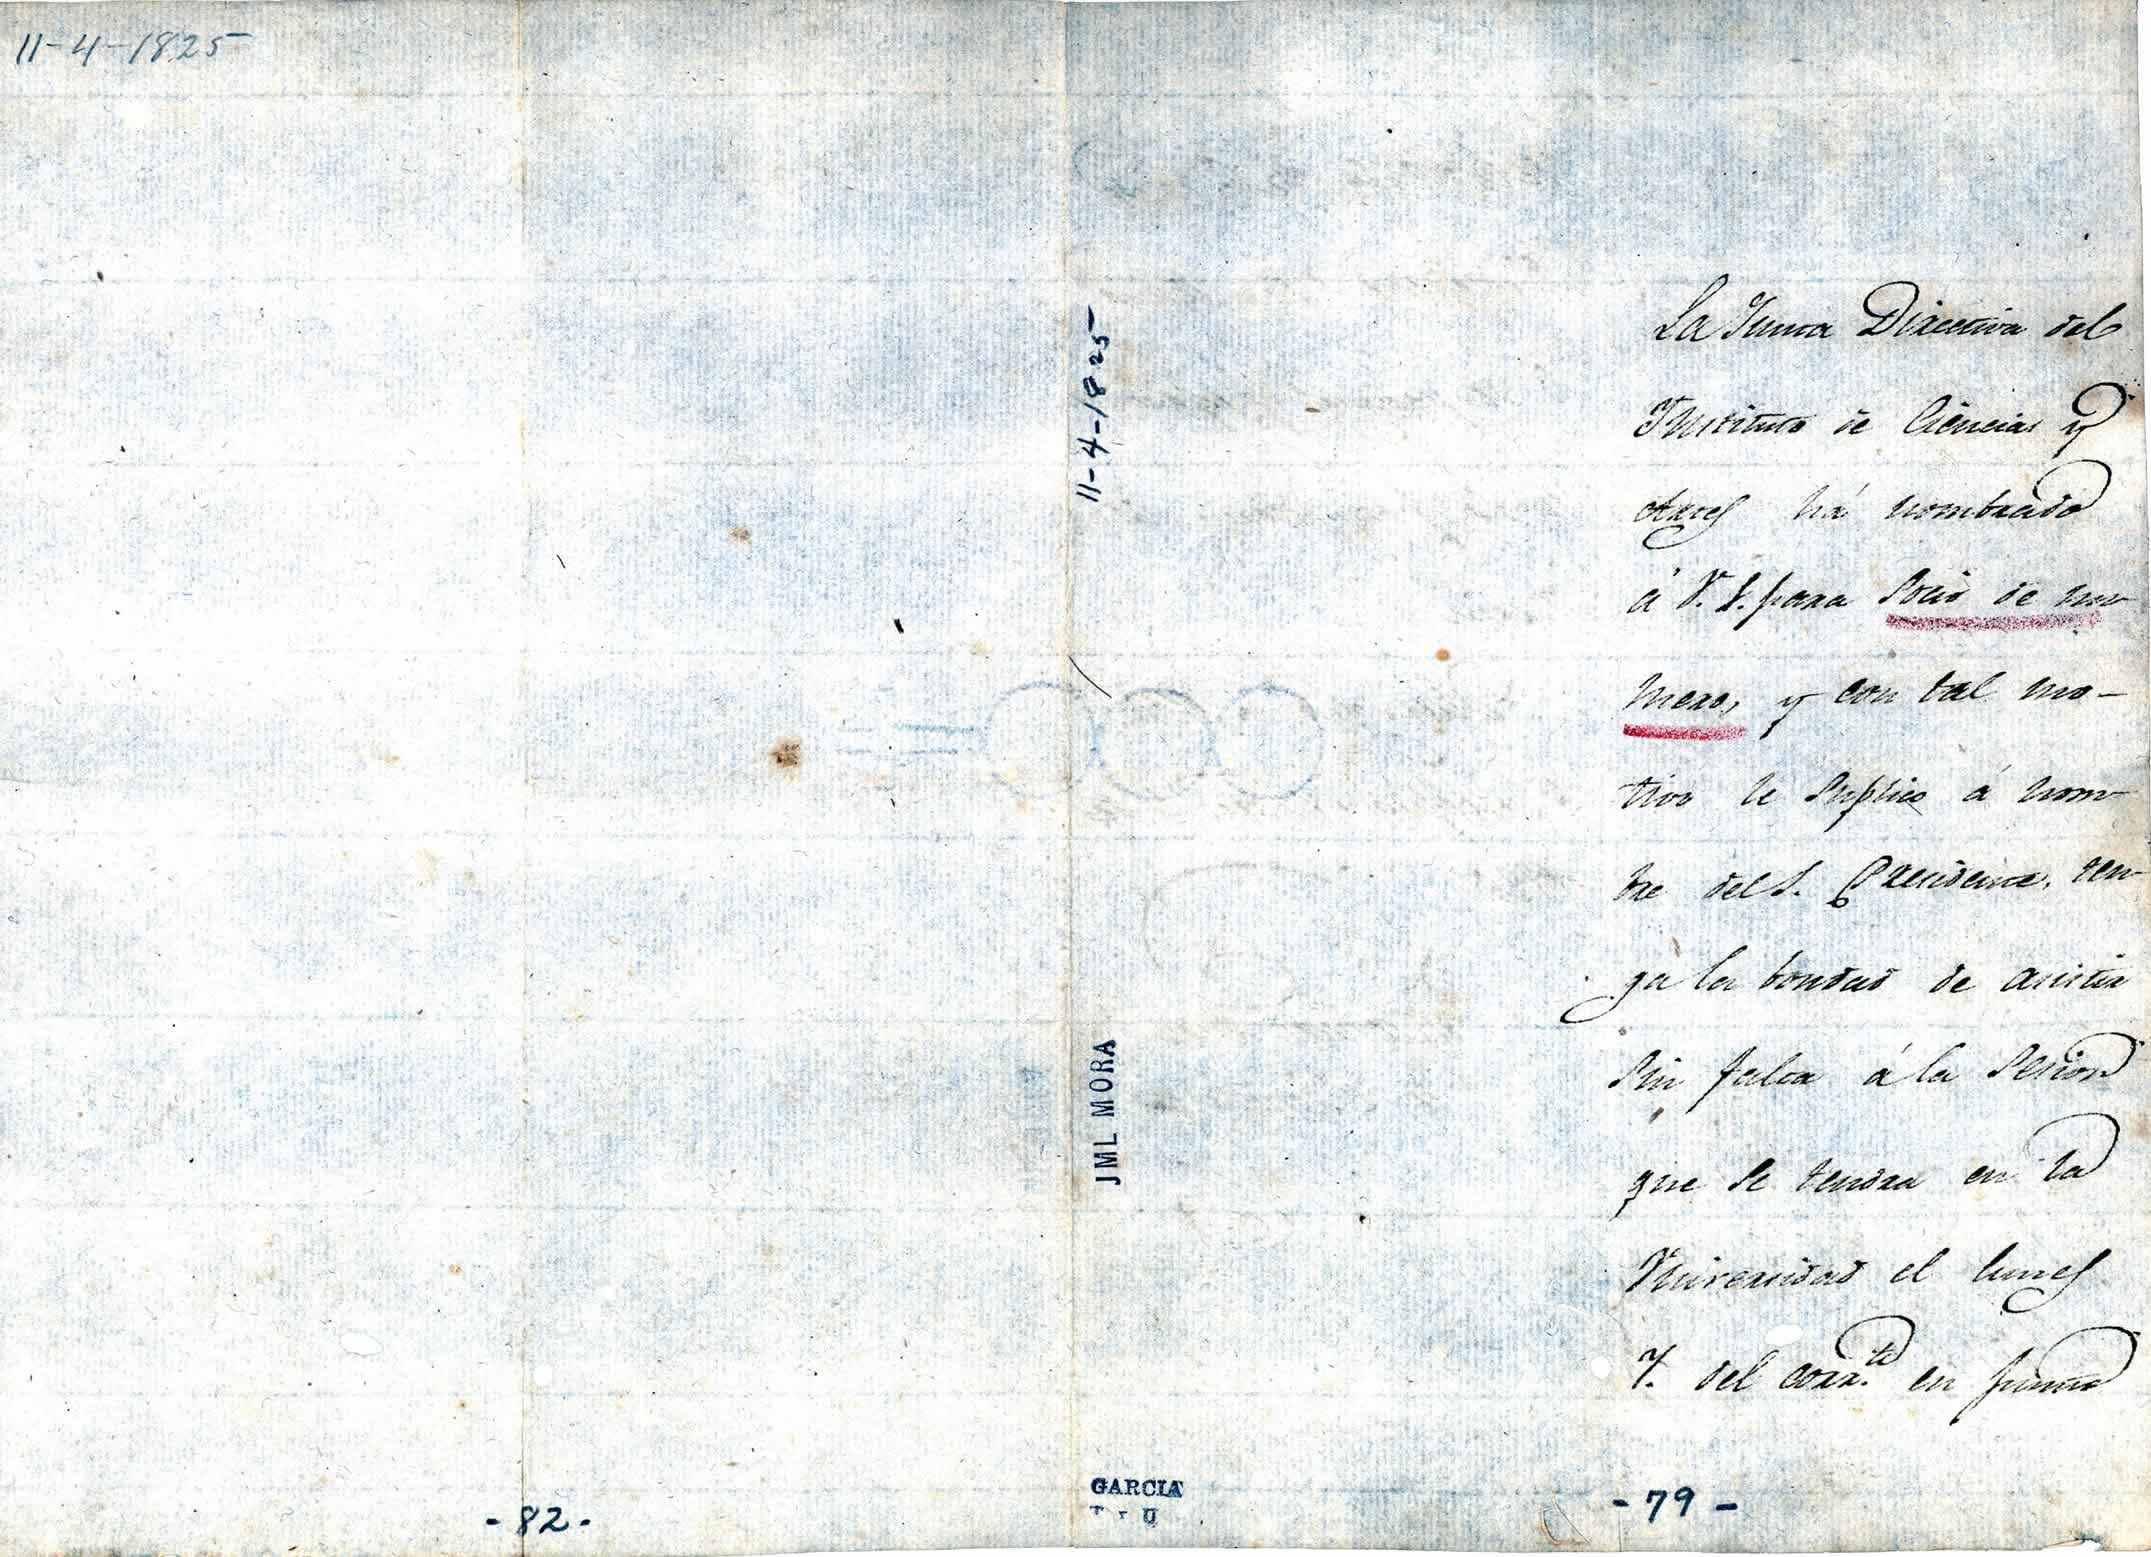 11-4-1825
11-4-1825
JML MORA
GARCIA
-82.
La Junta Directiva del
Instituto de Ciencias y
Artes há nombrado
á V. S. para Socio de nu-
mero, y con tal mo-
tivo le suplico á nom-
bre del S. Presidente, ten-
ga la bondad de asistir
sin falta á la Sesion
que se tendra en la
Universidad el lunes
7. del corr.te en punto
-79-